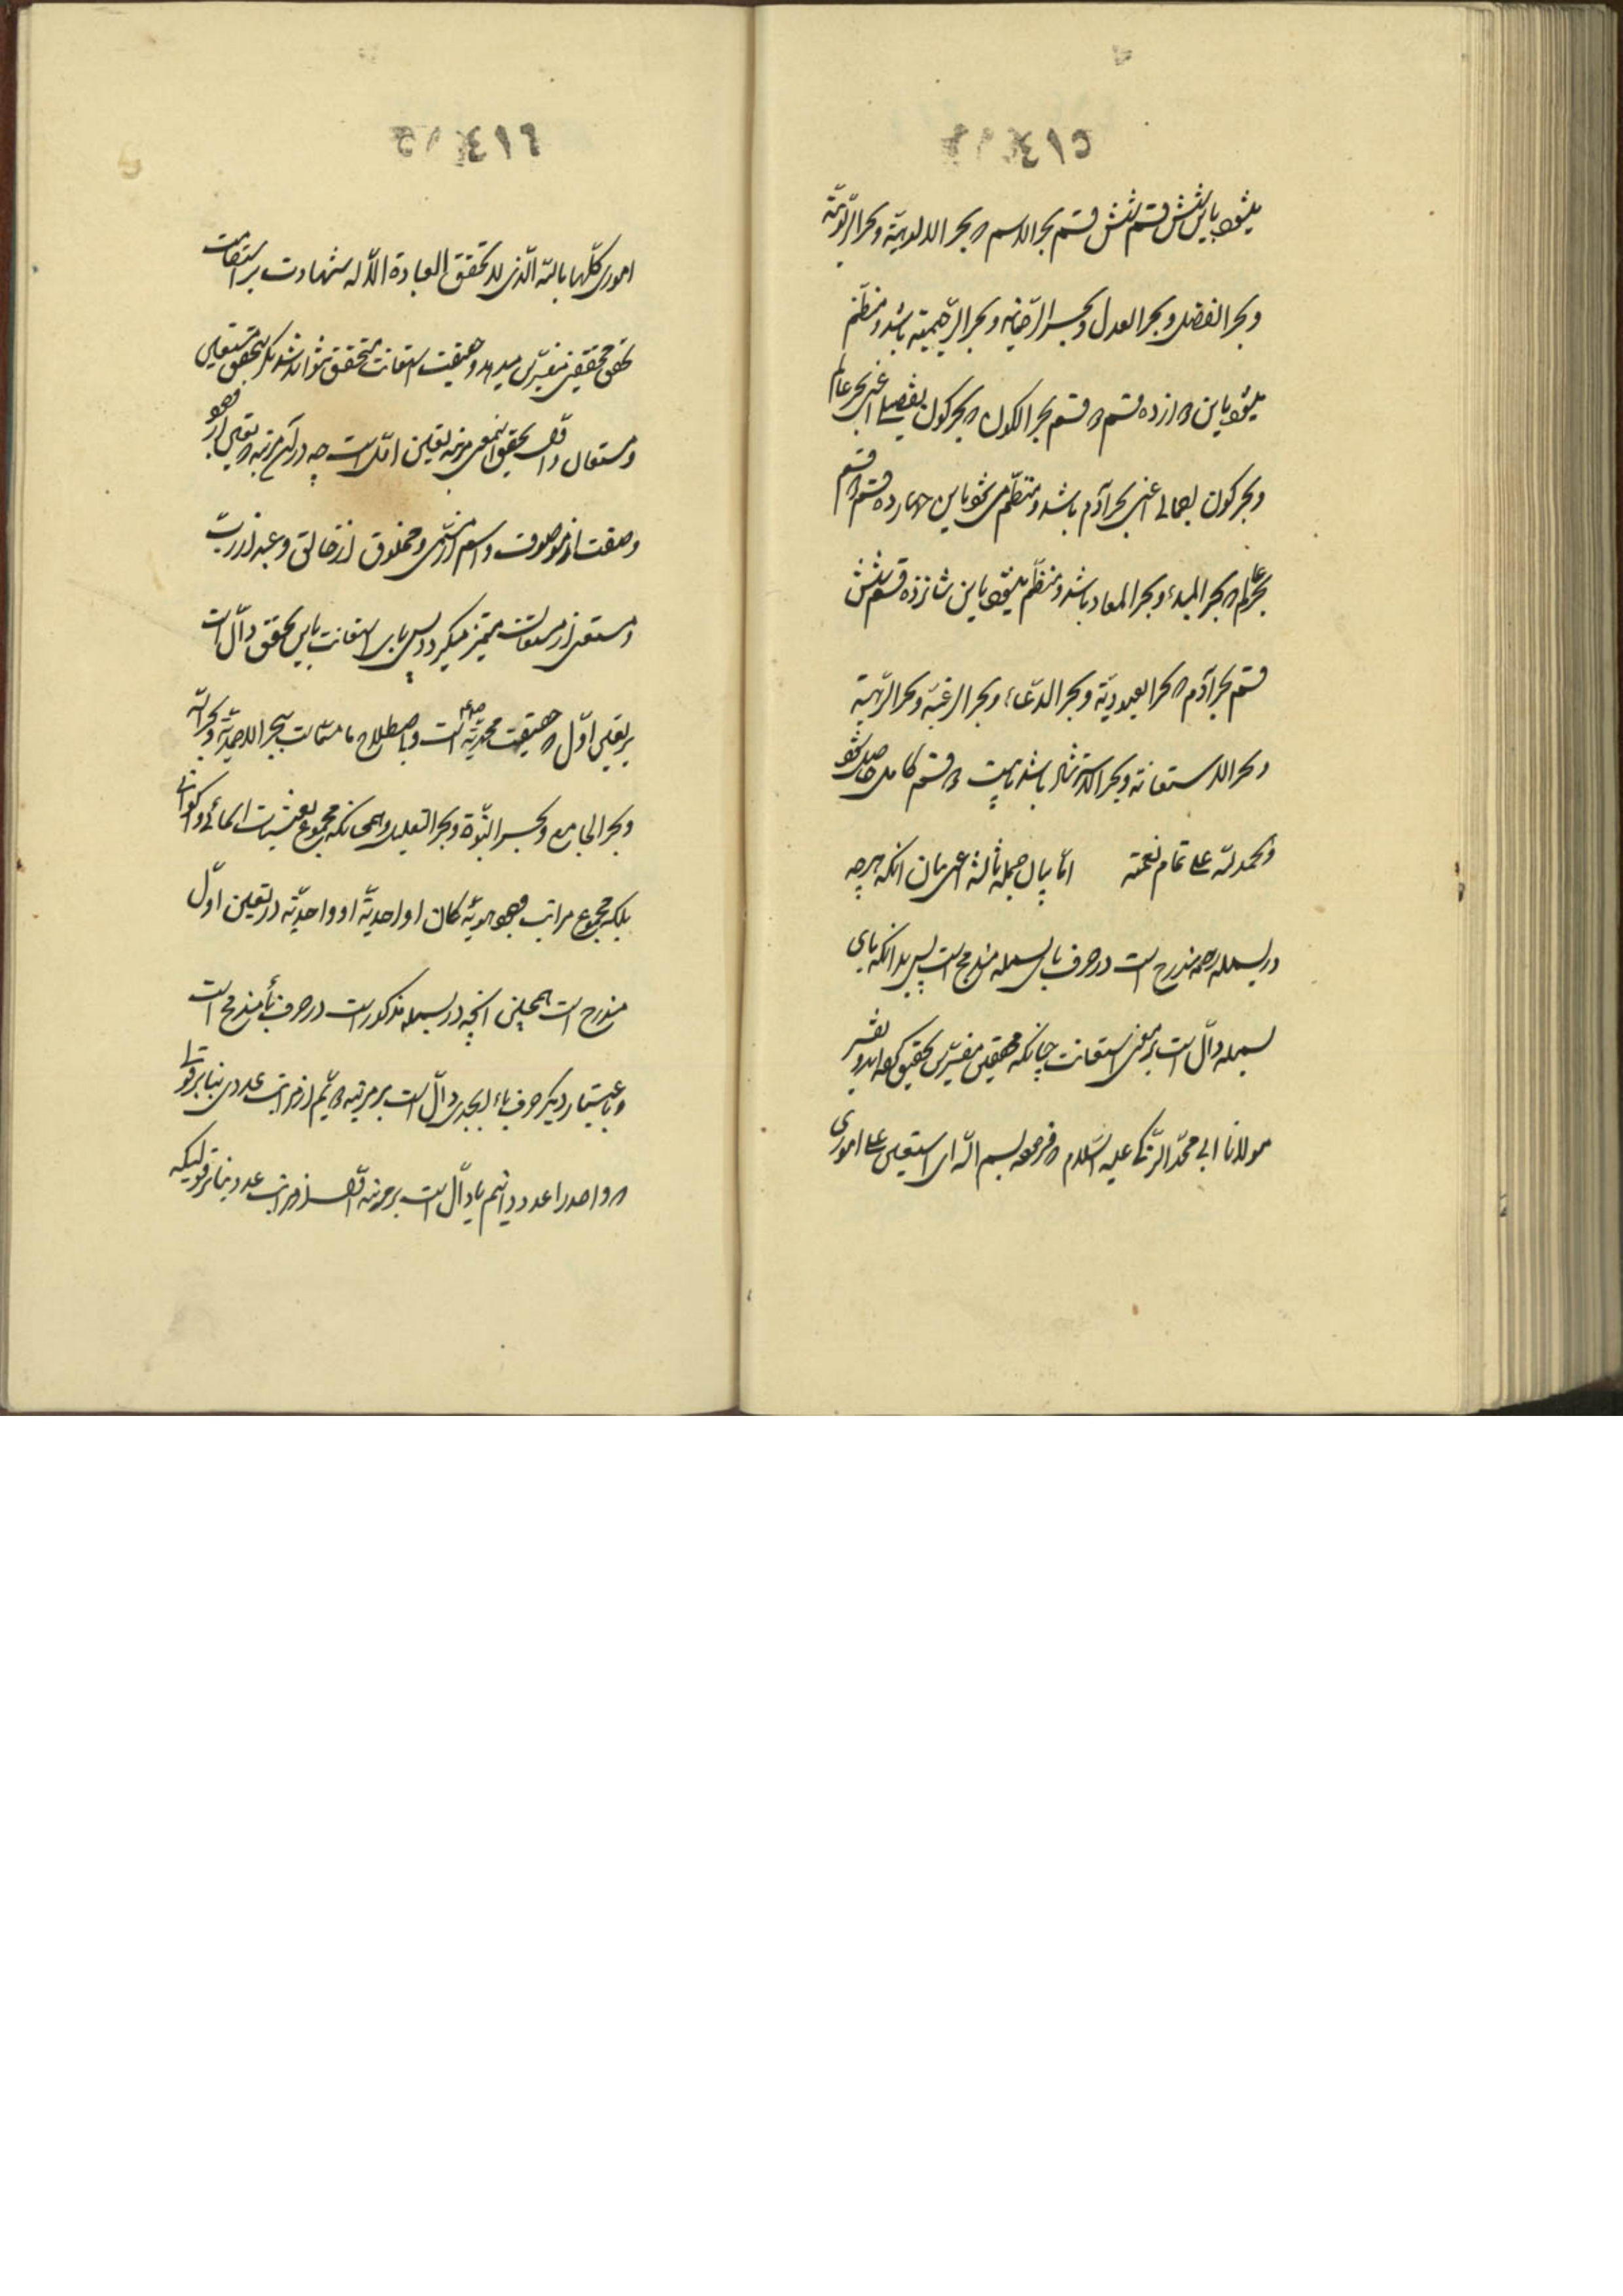 ٤١٥
میشود باین شش قسم شش قسم بحر الاسم و بحر الالوهیّة و بحر الربوبیّة
و بحر الفضل و بحر العدل و بحر الرحمانیه و بحر الرحیمیّه باشد و منظم
میشود باین دوازده قسم دو قسم بحر الکون و بحر کون تفصیلی اعنی بحر عالم
و بحر کون اجمالی اعنی بحر آدم باشد و منظم می شود باین چهارده قسم دو قسم
بحر عالم و بحر المبدء و بحر المعاد باشد و منظم میشود باین شانزده قسم شش
قسم بحر آدم و بحر العبودیّة و بحر الدعاء و بحر الرغبة و بحر الرهبة
و بحر الاستعانة و بحر باشد بیست دو قسم کامل حاصل شود
و الحمد لله علی تمام نعمته امّا بیان جمله ثالثه اعنی بیان آنکه هرچه
در بسمله مندرج است در حرف بای بسمله مندمج است پس بدانکه بای
بسمله دالّ است بر معنی استعانت چنانکه محققین مفسّرین تحقیق کرده اند و تفسیر
مولانا ابی محمّد الزکی علیه السلام فرموده بسم الله ای استعین علی اموری
٤١٦
اموری کلّها بالله الّذی لا تحقق العبادة الّا له شهادت بر استقامت
تحقیق محققین مفسّرین میدهد و حقیقت استعانت متحقق نتواند شد مگر بتحقق مستعین
و مستعان و اوّل تحقیق این معنی مرتبه تعیّن اوّل است چه در آن مرتبه
وصفت از موصوف و اسم از مسمّی و مخلوق از خالق و عبد از ربّ
و مستعین از مستعان متمیّز میگردد پس بای استعانت باین تحقق دالّ است
بر تعیّن اوّل و حقیقت محمدیّه است و باصطلاح ما مسمّاست ببحر الاحدیّة و بحر
و بحر الجامع و بحر النبوّة و بحر التعلیل و همچنانکه مجموع اسمائی و اکوانی
بلکه مجموع مراتب وجود هویّة کان او احدیّة او واحدیّة در تعیّن اوّل
مندرج است همچنین آنچه در بسمله مذکور است در حرف باء مندمج است
و باعتبار دیگر حرف باء ابجدی دالّ است بر مرتبه دویّم از مراتب عددی بنابر قول
و واحد را عدد دانیم یا دالّ است بر مرتبه اوّل از مراتب عدد بنابر قولیکه